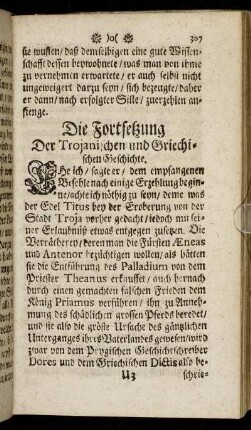 ❀ )o( ❀ 307
sie wusten/ daß demselbigen eine gute Wissen-
schafft dessen beywohnete/ was man von ihme
zu vernehmen erwartete/ er auch selbst nicht
ungeweigert darzu seyn/ sich bezeugte/ daher
er dann/ nach erfolgter Stille/ zuerzehlen an-
fienge.
Die Fortsetzung
Der Trojanischen und Griechi-
schen Geschichte.
EHe ich/ sagte er/ dem empfangenen
Befehle nach einige Erzehlung begin-
ne/ achte ich nöthig zu seyn/ deme was
der Edel Titus bey der Eroberung von der
Stadt Troja vorher gedacht/ jedoch mit sei-
ner Erlaubniß etwas entgegen zusetzen. Die
Verrätherey/ deren man die Fürsten Æneas
und Antenor bezüchtigen wollen/ als hätten
sie die Entführung des Palladium von dem
Priester Theanus erkauffet/ auch hernach
durch einen gemachten falschen Frieden dem
König Priamus verführen/ ihn zu Anneh-
mung des schädlichen grossen Pferds beredet/
und sie also die gröste Ursache des gäntzlichen
Unterganges ihres Vaterlandes gewesen/ wird
zwar von dem Prygischen Geschichtschreiber
Dores und dem Griechischen Dictis also be-
U3 schrie-